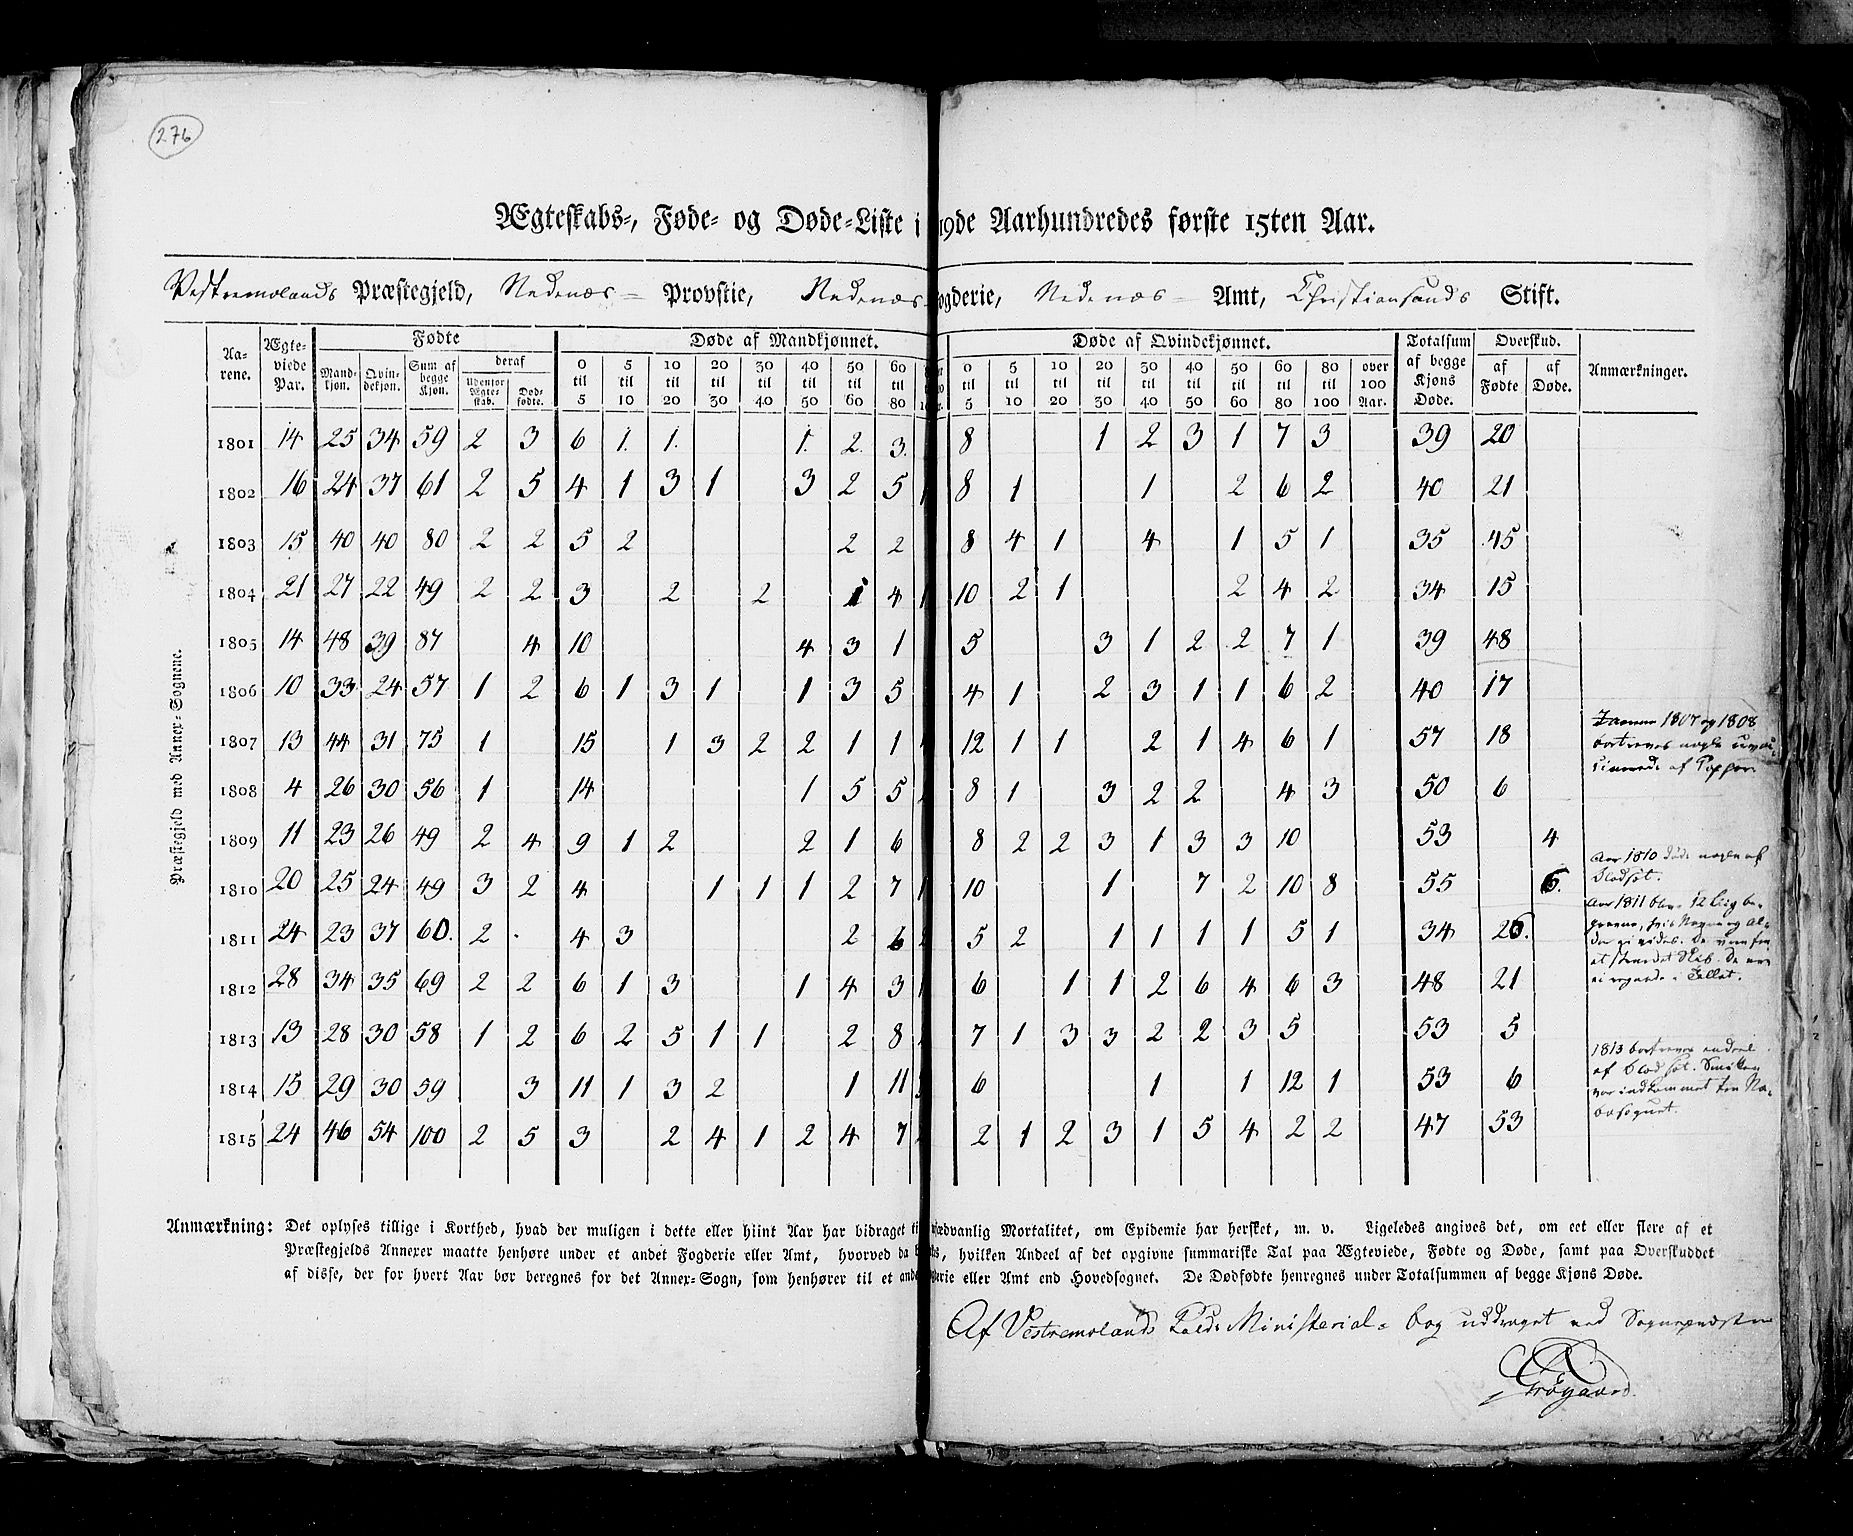 276
Ægteskabs-, Føde- og Døde-Liste i 19de Aarhundredes første 15ten Aar.
Vestremolands Præstegjeld, Nedenæs Provstie, Nedenæs Fogderie, Nedenæs Amt, Christiansands Stift.
Præstegjeld med Annex-Sognene.
Aarene. Ægteviede Par. Fødte Døde af Mandkjønnet. Døde af Qvindekjønnet. Totalsum af begge Kjøns Døde. Overskud. Anmærkninger.
Mandkjøn. Qvindekjøn. Sum af begge Kjøn. deraf Udenfor Ægteskab. Dødfødte. 0 til 5 5 til 10 10 til 20 20 til 30 30 til 40 40 til 50 50 til 60 60 til 80 0 til 5 5 til 10 10 til 20 20 til 30 30 til 40 40 til 50 50 til 60 60 til 80 80 til 100 over 100 Aar. af Fødte af Døde.
1801 14 25 34 59 2 3 6 1. 1. 1. 2. 3. 8 1 2 3 1 7 3 39 20
1802 16 24 37 61 2 5 4 1 3 1 3 2 5 1 8 1 1 2 6 2 40 21
1803 15 40 40 80 2 2 5 2 2 2 8 4 1 4 1 5 1 35 45
1804 21 27 22 49 2 2 3 2 2 1 4 1 10 2 1 2 4 2 34 15
1805 14 48 39 87 4 10 4 3 1 5 3 1 2 2 7 1 39 48
1806 10 33 24 57 1 2 6 1 3 1 1 3 5 4 1 2 3 1 1 6 2 40 17
1807 13 44 31 75 1 15 1 3 2 2 1 1 12 1 1 2 1 4 6 1 57 18
1808 4 26 30 56 1 14 1 5 5 8 1 3 2 2 4 3 50 6
1809 11 23 26 49 2 4 9 1 2 2 1 6 8 2 2 3 1 3 3 10 53 4
1810 20 25 24 49 3 2 4 1 1 1 2 7 1 10 1 7 2 10 8 55 6.
1811 24 23 37 60. 2 4 3 2 6 5 2 1 1 1 1 5 1 34 26.
1812 28 34 35 69 2 2 6 1 3 1 4 3 1 6 1 1 2 6 4 6 3 48 21
1813 13 28 30 58 1 2 6 2 5 1 1 2 8 7 1 3 3 2 2 3 5 53 5
1814 15 29 30 59 3 11 1 3 2 1 11 6 1 1 12 1 53 6
1815 24 46 54 100 2 5 3 2 4 1 2 4 7 2 1 2 3 1 5 4 2 2 47 53
1807 og 1808
bortreves nogle
af
Aar 1810 døde nogle af
Blodsot.
Aar 1811 blev 12 Liig be-
1813 bortreves endeel
af Blodsot. Smitten
var indkommet fra Na-
bosognet.
Anmærkning: Det oplyses tillige i Korthed, hvad der muligen i dette eller hiint Aar har bidraget til sædvanlig Mortalitet, om Epidemie har hersket, m. v. Ligeledes angives det, om eet eller flere af et
Præstegjelds Annexer maatte henhøre under et andet Fogderie eller Amt, hvorved da hvilken Andeel af det opgivne summariske Tal paa Ægteviede, Fødte og Døde, samt paa Overskuddet
af disse, der for hvert Aar bør beregnes for det Annex-Sogn, som henhører til et andet Fogderie eller Amt end Hovedsognet. De Dødfødte henregnes under Totalsummen af begge Kjøns Døde.
Af Vestremolands Kalds Ministerial-bog uddraget ved Sognepræsten
Krøgaard.